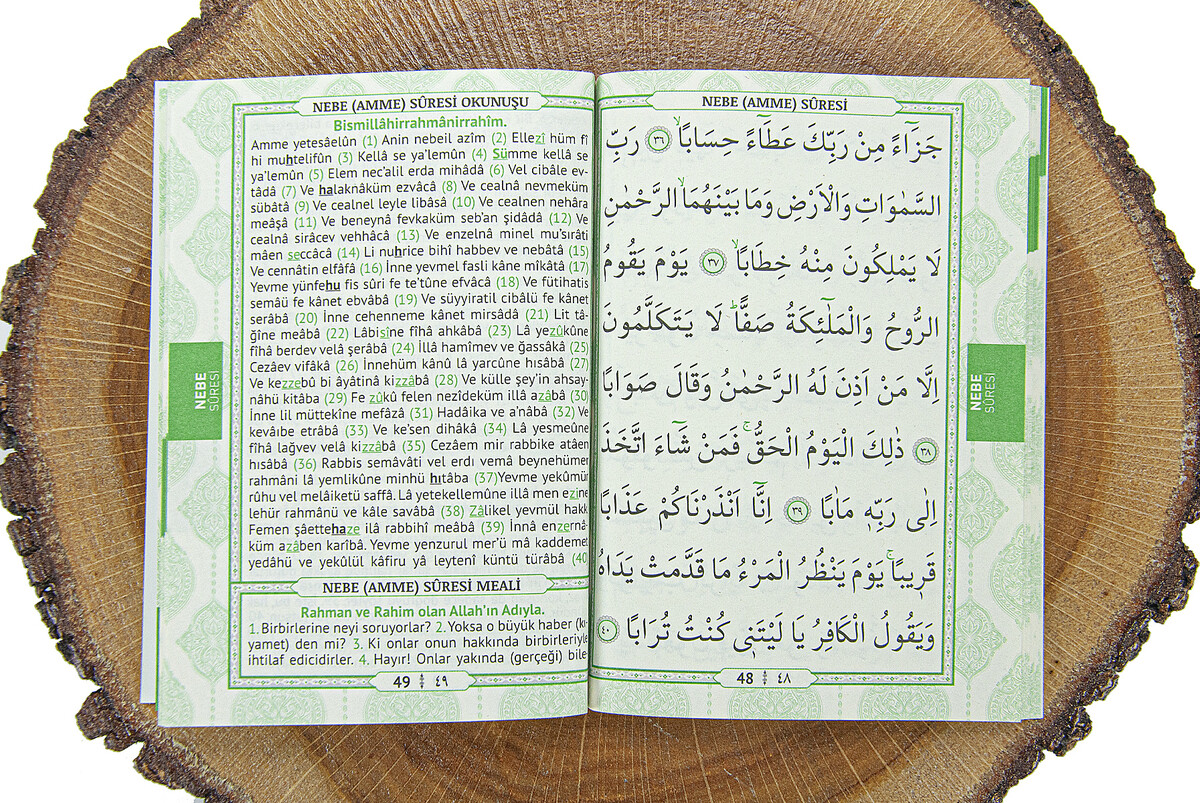 NEBE (AMME) SÛRESİ
جَزَٓاءً مِنْ رَبِّكَ عَطَٓاءً حِسَابًاۙ ﴿٣٦﴾ رَبِّ
السَّمٰوَاتِ وَالْاَرْضِ وَمَا بَيْنَهُمَا الرَّحْمٰنِ
لَا يَمْلِكُونَ مِنْهُ خِطَابًاۙ ﴿٣٧﴾ يَوْمَ يَقُومُ
الرُّوحُ وَالْمَلٰٓئِكَةُ صَفًّاۜ لَا يَتَكَلَّمُونَ
اِلَّا مَنْ اَذِنَ لَهُ الرَّحْمٰنُ وَقَالَ صَوَابًا
﴿٣٨﴾ ذٰلِكَ الْيَوْمُ الْحَقُّۚ فَمَنْ شَٓاءَ اتَّخَذَ
اِلٰى رَبِّه۪ مَاٰبًا ﴿٣٩﴾ اِنَّٓا اَنْذَرْنَاكُمْ عَذَابًا
قَر۪يبًاۚ يَوْمَ يَنْظُرُ الْمَرْءُ مَا قَدَّمَتْ يَدَاهُ
وَيَقُولُ الْكَافِرُ يَا لَيْتَن۪ى كُنْتُ تُرَابًا ﴿٤٠﴾
48 ٤٨
NEBE
SÛRESİ
NEBE (AMME) SÛRESİ OKUNUŞU
Bismillâhirrahmânirrahîm.
Amme yetesâelûn (1) Anin nebeil azîm (2) Ellezî hüm fî
hi muhtelifûn (3) Kellâ se ya'lemûn (4) Sümme kellâ se
ya'lemûn (5) Elem nec'alil erda mihâdâ (6) Vel cibâle ev-
tâdâ (7) Ve halaknâküm ezvâcâ (8) Ve cealnâ nevmeküm
sübâtâ (9) Ve cealnel leyle libâsâ (10) Ve cealnen nehâra
meâşâ (11) Ve beneynâ fevkaküm seb'an şidâdâ (12) Ve
cealnâ sirâcev vehhâcâ (13) Ve enzelnâ minel mu'sırâti
mâen seccâcâ (14) Li nuhrice bihî habbev ve nebâtâ (15)
Ve cennâtin elfâfâ (16) İnne yevmel fasli kâne mîkâtâ (17)
Yevme yünfehu fis sûri fe te'tûne efvâcâ (18) Ve fütihatis
semâü fe kânet ebvâbâ (19) Ve süyyiratil cibâlü fe kânet
serâbâ (20) İnne cehenneme kânet mirsâdâ (21) Lit tâ-
ğîne meâbâ (22) Lâbisîne fîhâ ahkâbâ (23) Lâ yezûkûne
fîhâ berdev velâ şerâbâ (24) İllâ hamîmev ve ğassâkâ (25)
Cezâev vifâkâ (26) İnnehüm kânû lâ yarcûne hısâbâ (27)
Ve kezzebû bi âyâtinâ kizzâbâ (28) Ve külle şey'in ahsay-
nâhü kitâba (29) Fe zûkû felen nezîdeküm illâ azâbâ (30)
İnne lil müttekîne mefâzâ (31) Hadâika ve a'nâbâ (32) Ve
kevâıbe etrâbâ (33) Ve ke'sen dihâkâ (34) Lâ yesmeûne
fîhâ lağvev velâ kizzâbâ (35) Cezâem mir rabbike atâen
hısâbâ (36) Rabbis semâvâti vel erdı vemâ beynehümer
rahmâni lâ yemlikûne minhü hıtâba (37)Yevme yekûmür
rûhu vel melâiketü saffâ. Lâ yetekellemûne illâ men ezine
lehür rahmânü ve kâle savâbâ (38) Zâlikel yevmül hakk
Femen şâettehaze ilâ rabbihî meâbâ (39) İnnâ enzernâ
küm azâben karîbâ. Yevme yenzurul mer'ü mâ kaddemet
yedâhü ve yekûlül kâfiru yâ leytenî küntü türâbâ (40)
NEBE (AMME) SÛRESİ MEALİ
Rahman ve Rahim olan Allah'ın Adıyla.
1. Birbirlerine neyi soruyorlar? 2. Yoksa o büyük haber (kı-
yamet) den mi? 3. Ki onlar onun hakkında birbirleriyle
ihtilaf edicidirler. 4. Hayır! Onlar yakında (gerçeği) bile
49 ٤٩
NEBE
SÛRESİ